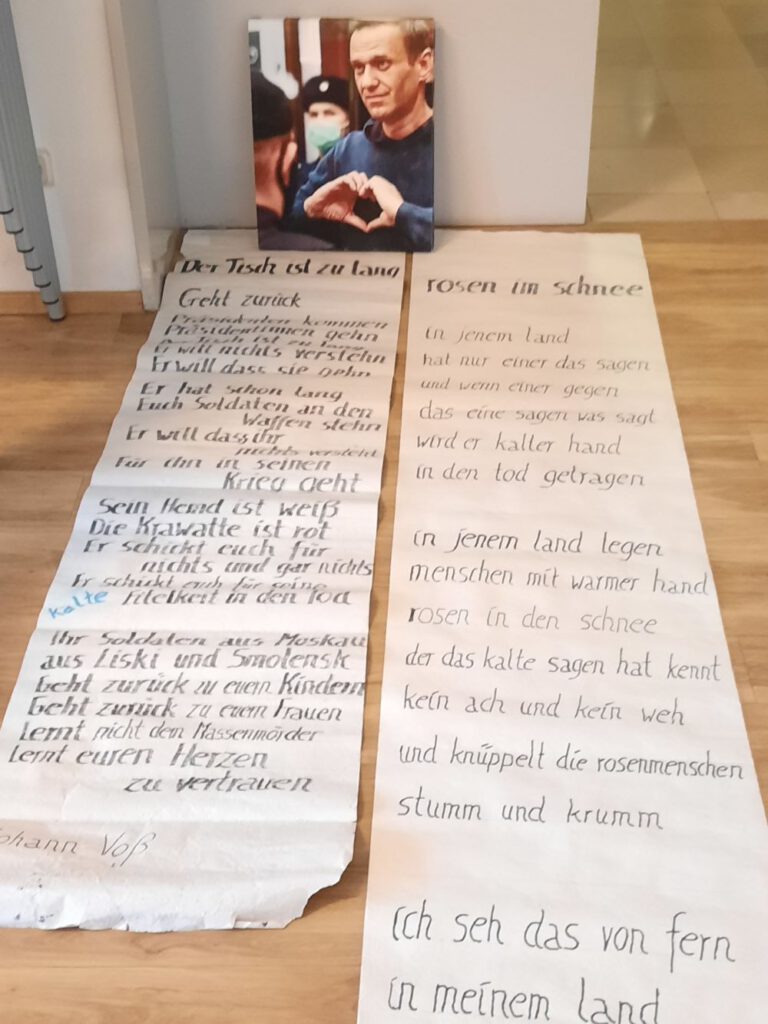 Der Tisch ist zu lang
Geht zurück
Präsidenten kommen
Präsidentinnen gehn
Tisch ist zu lang
Er will nichts verstehn
Er will dass sie gehn
Er hat schon lang
Euch Soldaten an den
Waffen stehn
Er will dass ihr
nichts versteht
Für ihn in seinen
Krieg geht
Sein Hemd ist weiß
Die Krawatte ist rot
Er schickt euch für
nichts und gar nichts
Er schickt euch für seine
kalte Eitelkeit in den Tod
Ihr Soldaten aus Moskau
aus Liski und Smolensk
Geht zurück zu euern Kindern
Geht zurück zu euern Frauen
Lernt nicht dem Massenmörder
Lernt euren Herzen
zu vertrauen
Johann Voß
rosen im schnee
in jenem land
hat nur einer das sagen
und wenn einer gegen
das eine sagen was sagt
wird er kalter hand
in den tod getragen
in jenem land legen
menschen mit warmer hand
rosen in den schnee
der das kalte sagen hat kennt
kein ach und kein weh
und knüppelt die rosenmenschen
stumm und krumm
ich seh das von fern
in meinem land